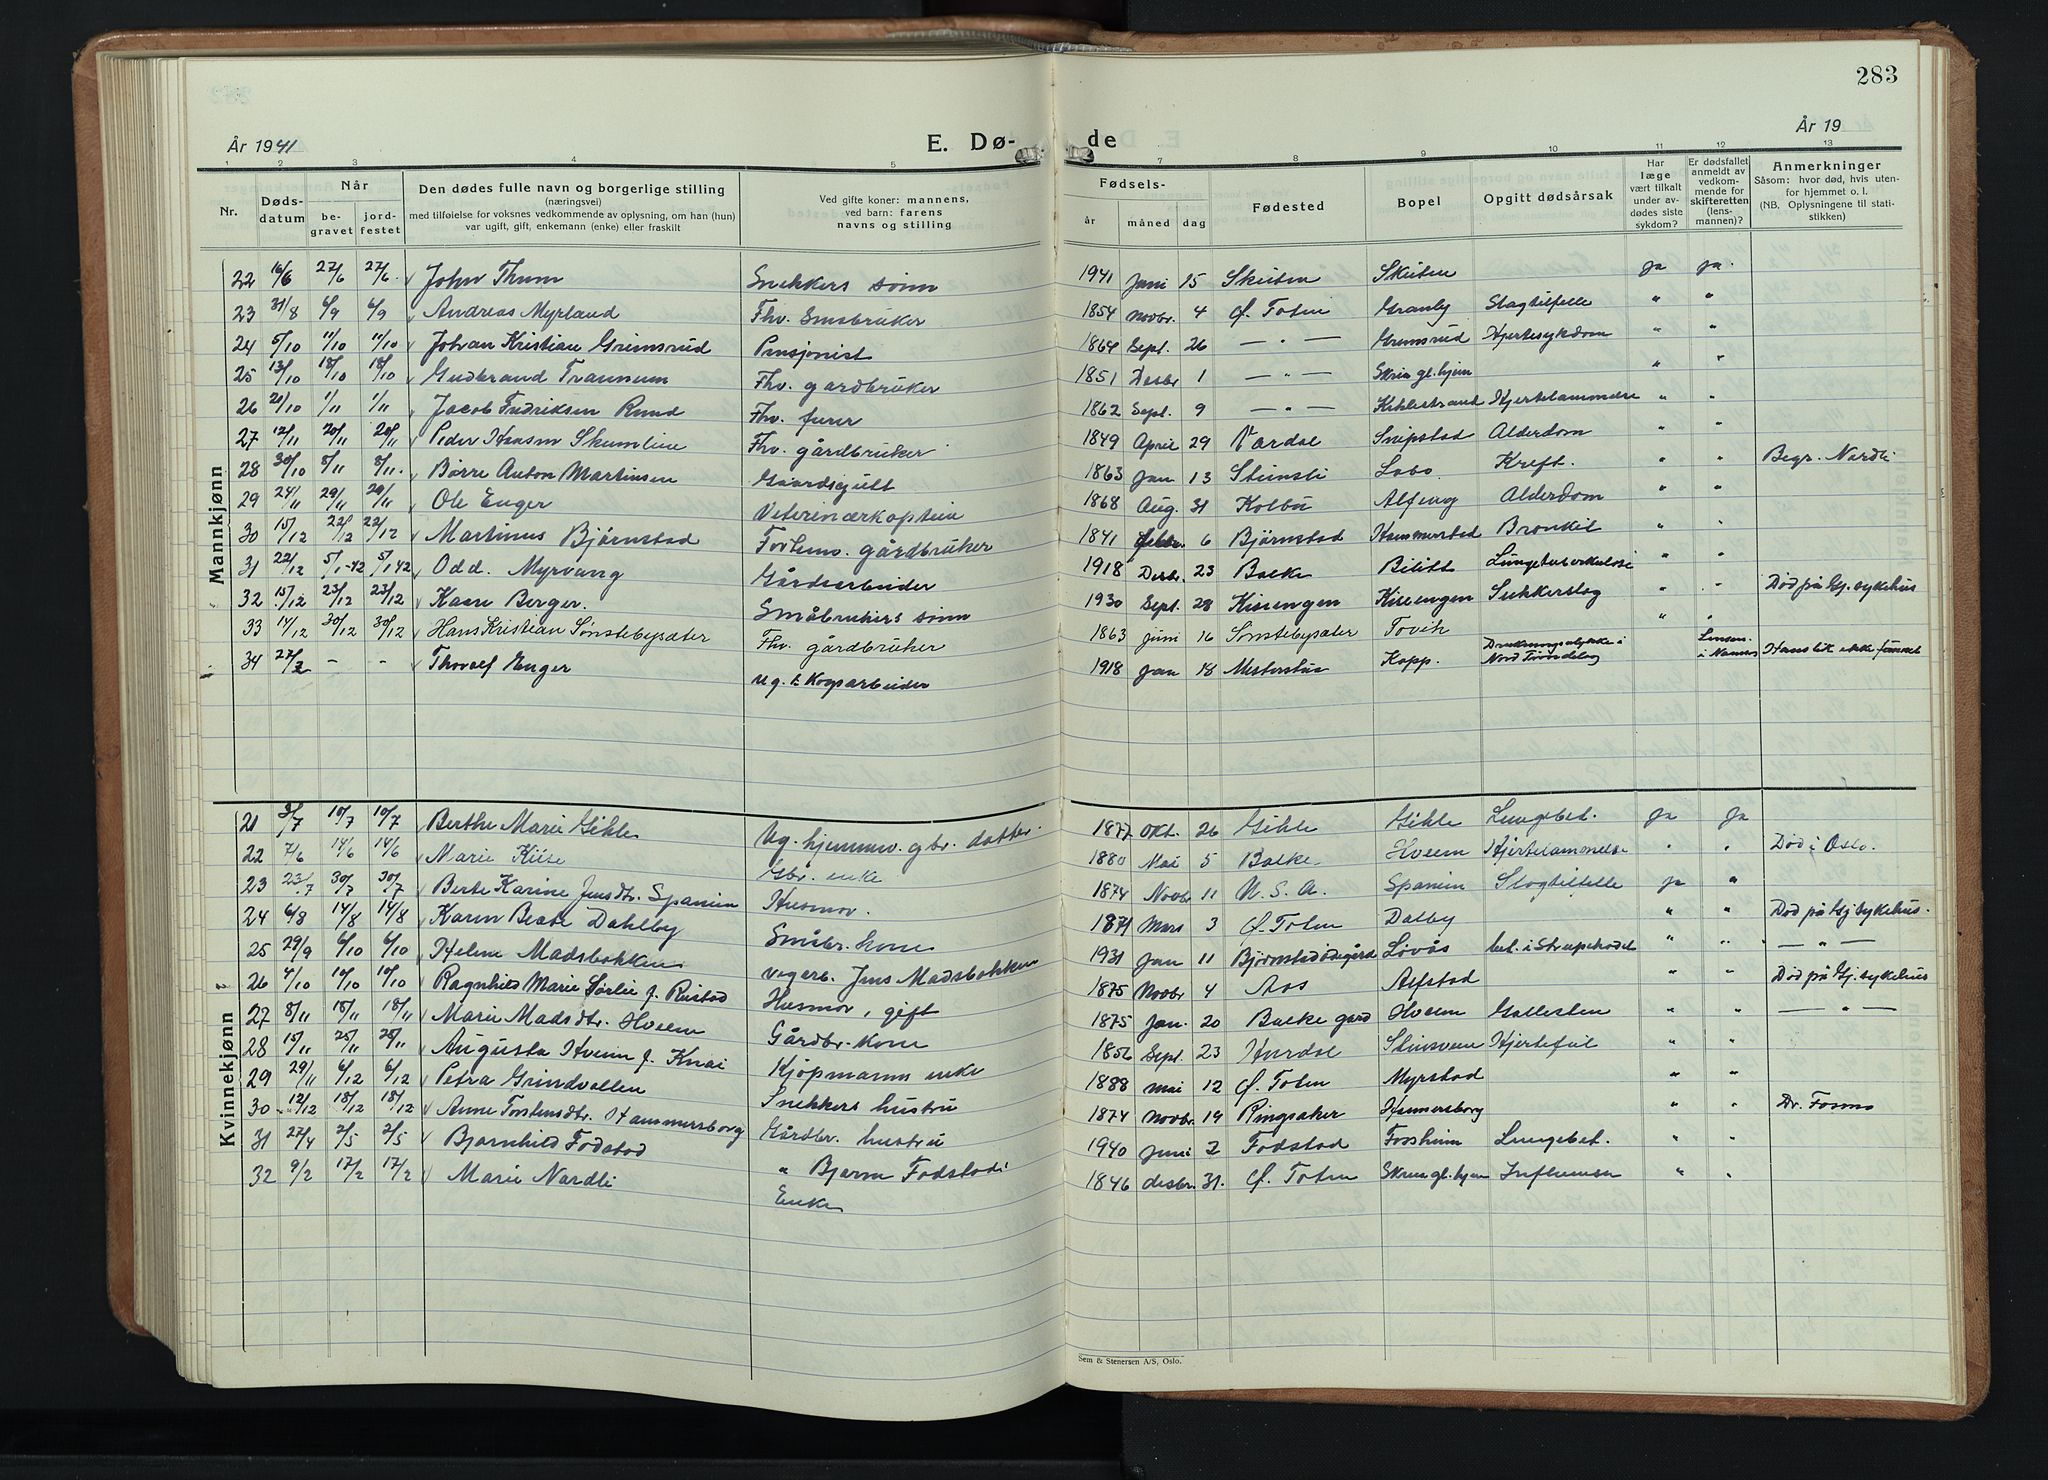 283
År 1941
E. Dø-
de
År 19
1 2 3 4 5 7 8 9 10 11 12 13
Nr.
Døds-
datum
Når
be-
gravet
jord-
festet
Den dødes fulle navn og borgerlige stilling
(næringsvei)
med tilføielse for voksnes vedkommende av oplysning, om han (hun)
var ugift, gift, enkemann (enke) eller fraskilt
Ved gifte koner: mannens,
ved barn: farens
navns og stilling
Fødsels-
år måned dag
Fødested
Bopel
Opgitt dødsårsak
Har
læge
vært tilkalt
under av-
dødes siste
sykdom?
Er dødsfallet
anmeldt av
vedkom-
mende for
skifteretten
(lens-
mannen)?
Anmerkninger
Såsom: hvor død, hvis uten-
for hjemmet o. l.
(NB. Oplysningene til stati-
stikken)
Mannkjønn
22 16/6 27/6 27/6 John Thum Snekkers sønn 1941 Juni 15 Skuten Skuten ja ja.
23 31/8 6/9 6/9 Andreas Myrland Fhv. Småbruker 1854 Novbr. 4 Ø. Toten Granby Slagtilfelle " "
24 5/10 11/10 11/10 Johan Kristian Grimsrud Pensjonist 1864 Sept. 26 — " — Grimsrud Hjertesykdom " "
25 13/10 18/10 18/10 Gudbrand Trannum Fhv. gardbruker 1851 Desbr 1 — " — Skrin gl.hjem " "
26 20/10 1/11 1/11 Jacob Fredriksen Rund Fhv. furer 1862 Sept. 9 — " — Kihlestrand Hjertelammelse " "
27 12/11 20/11 20/11 Peder Hansen Skumlien Fhv. gårdbruker 1849 April 29 Vardal Snipstad Alderdom " "
28 30/10 8/11 8/11 Børre Anton Martinsen Gaardsgutt 1863 Jan 13 Stensli Labo Kreft. " " Begr. Nordli
29 24/11 29/11 29/11 Ole Enger Veterinærkaptein 1868 Aug. 31 Kolbu Alfeng Alderdom " "
30 15/12 22/12 22/12 Martinus Bjørnstad Forhenv. gårdbruker 1841 Febr. 6 Bjørnstad Hammerstad Bronkit " "
31 22/12 5/1-42 5/1 42 Odd. Myrvang Gårdsarbeider 1918 Desbr. 23 Balke Bilitt Lungetuberkulose " "
32 15/12 23/12 23/12 Kaare Berger. Småbrukers sønn 1930 Sept. 28 Kisengen Kisengen Sukkerslag " " Død på Gj. sykehus
33 14/12 30/12 30/12 Hans Kristian Sønstebysæter Fhv. gårdbruker 1863 Juni 16 Sønstebysæter Tovik " "
34 27/2 - - Thoralf Enger Ug. E Kogsarbeider 1918 Jan 18 Mesterstua Kapp. Drukningsulykke i
Nord Trøndelag Hans lik ikke funnet
Kvinnekjønn
21 3/7 10/7 10/7 Berthe Marie Gihle Ug. hjemmev. gbr. datter. 1877 Okt. 26 Gihle Gihle Lungebet. Ja Ja
22 7/6 14/6 14/6 Marie Kise Gbr. enke 1880 Mai 5 Balke Hveem Hjertelammelse " " Død i Oslo.
23 23/7 30/7 30/7 Berte Karine Jensdtr. Spanien Husmor. 1874 Novbr 11 U. S. A. Spanien Slagtilfelle ja "
24 6/8 14/8 14/8 Karen Beate Dahlby Småbr. kone 1871 Mars 3 Ø. Toten Dalby " " Død på Gj sykehus.
25 29/9 6/10 6/10 Helene Madsbakken vegarb. Jens Madsbakken 1931 Jan 11 Bjørnstadødegård Løvås bet. i Strupehodet " " — " —
26 4/10 10/10 10/10 Ragnhild Marie Sørlie f. Rustad Husmor, gift 1875 Novbr 4 Aas Alfstad " " Død på Gj. sykehus
27 8/11 15/11 18/11 Marie Madsdtr. Hveem Gårdbr. kone 1875 Jan. 20 Balke gård Hveem Gallesten " " — " —
28 15/11 25/11 25/11 Augusta Hveem f. Knai Kjøpmanns enke 1856 Sept. 23 Hurdal Stensveen Hjertefeil " "
29 29/11 6/12 6/12 Petra Grindvollen Snekkers hustru 1888 mai 12 Ø. Toten Myrstad " "
30 12/12 18/12 18/12 Anne Torstensdtr. Hammersborg Gårdbr. hustru 1874 novbr. 19 Ringsaker Hammersborg " " Dr. Fosmo
31 27/4 2/5 2/5 Bjørnhild Fodstad " Bjarne Fodstad 1940 juni 2 Fodstad Fossheim Lungebet. " "
32 9/2 17/2 17/2 Marie Nordli Enke 1846 desbr. 31. Ø. Toten Skrein gl.hjem Influensa " "
Sem & Stenersen A/S, Oslo.